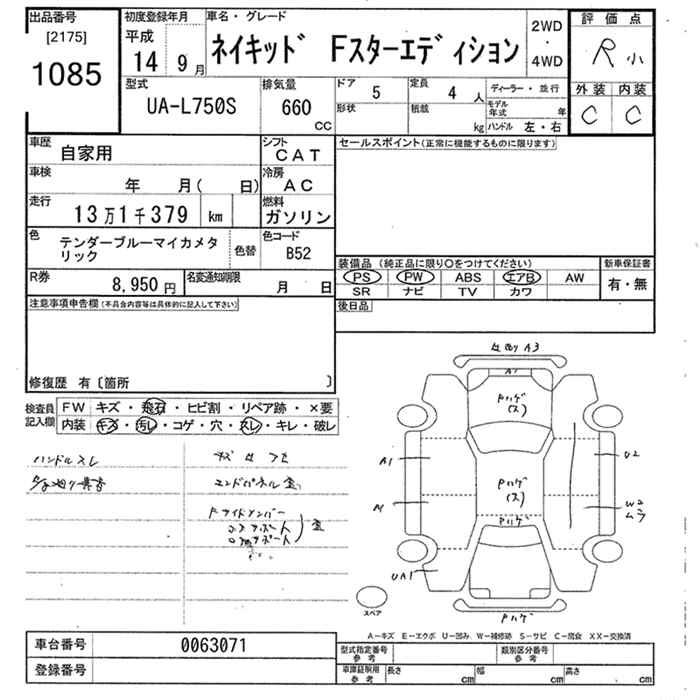 出品番号 初度登録年月 車名・グレード 評価点
[2175] 平成 2WD
1085 14年 9月 ネイキッド Fスターエディション ・ R 小
4WD
型式 排気量 ドア 定員 ディーラー・並行 外装 内装
UA-L750S 660 5 4人 モデル年式 年 C C
CC 形状 積載 kg ハンドル 左・右
車歴 自家用 シフト CAT セールスポイント(正常に機能するものに限ります)
車検 年 月( 日) 冷房 AC
走行 13万1千379 km 燃料 ガソリン
色 テンダーブルーマイカメタリック 色替 色コード B52
装備品(純正品に限り○をつけてください) 新車保証書
R券 8,950円 名変通知期限 月 日 PS PW ABS エアB AW 有・無
SR ナビ TV カワ
注意事項申告欄(不具合内容等は具体的に記入して下さい) 後日品
修復歴 有〔箇所 〕
検査員記入欄 FW キズ・飛石・ヒビ割・リペア跡・×要
内装 キズ・汚レ・コゲ・穴・スレ・キレ・破レ
ハンドルスレ
エンドパネル
A3
A1
Pハゲ
(ス)
A1
U2
Pハゲ
(ス)
W2
ムラ
Pハゲ
UA1
スペア
Pハゲ
A-キズ E-エクボ U-凹み W-補修跡 S-サビ C-腐食 XX-交換済
車台番号 0063071 型式指定番号 参考 類別区分番号 参考
登録番号 車庫証明用 参考 長さ cm 幅 cm 高さ cm